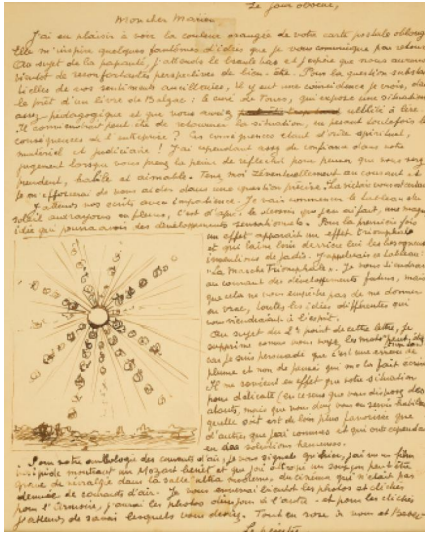 Le jour obscur,
Mon cher Marien
J'ai eu plaisir à voir la couleur orangée de votre carte postale oblongue
Elle m'inspire quelques fantômes d'idées que je vous communique par retour.
Au sujet de la papauté, j'attends le et j'espère que nous aurons
bientôt de réconfortantes perspectives de bien-être. Pour la question
de vos sentiments il y eut une coïncidence je crois, dans
le prêt d'un livre de Balzac : le curé de Tours, qui expose une situation
assez pédagogique et que vous auriez utilité à lire.
Il conviendrait peut être de retourner la situation, en pesant toutefois les
conséquences de l'entreprise ? Ces conséquences étant d'ordre spirituel,
matériel et judiciaire ! J'ai cependant assez de confiance dans votre
jugement lorsque vous prenez la peine de réfléchir pour penser que vous serez
prudent, habile et aimable. Tenez moi éventuellement au courant et
je m'efforcerai de vous aider dans une question précise. La victoire vous
J'attends vos écrits avec impatience. Je vais commencer le tableau du
soleil aux rayons en fleurs, c'est d'après le dessin que j'en ai fait, une
idée qui pourra avoir des développements Pour la première fois
un effet apparaît un effet triomphal
et qui laisse loin derrière lui les
inventions de jadis. J'appellerai ce tableau :
"La Marche Triomphale". Je vous tiendrai
au courant des développements futurs, mais
que cela ne vous empêche pas de me donner
en vrac, toutes les idées différentes qui
vous viendraient à l'esprit.
Au sujet du 2e point de cette lettre, je
supprime comme vous voyez les mots
car je suis persuadé que c'est une erreur de
plume et non de pensée qui me l'a fait écrire
Il me revient en effet que votre situation
peu délicate (en ce sens que vous disposez des
atouts, mais que vous devez vous en servir
quelle soit est de loin plus favorisée que
d'autres que j'ai connues et qui ont cependant
eu des solutions heureuses.
Pour notre anthologie des courants d'air, je vous signale qu'hier, j'ai vu un film
insipide montrant un Mozart et que j'ai attrapé un soupçon peut être
grave de névralgie dans la salle "ultra moderne" du cinéma qui n'était pas
démunie de courants d'air. Je vous enverrai bientôt les photos et clichés
pour l'armoire, j'aurai les photos d'un jour à l'autre - et pour les clichés
j'attends de savoir lesquels vous Tout en rose à vous et
Le peintre